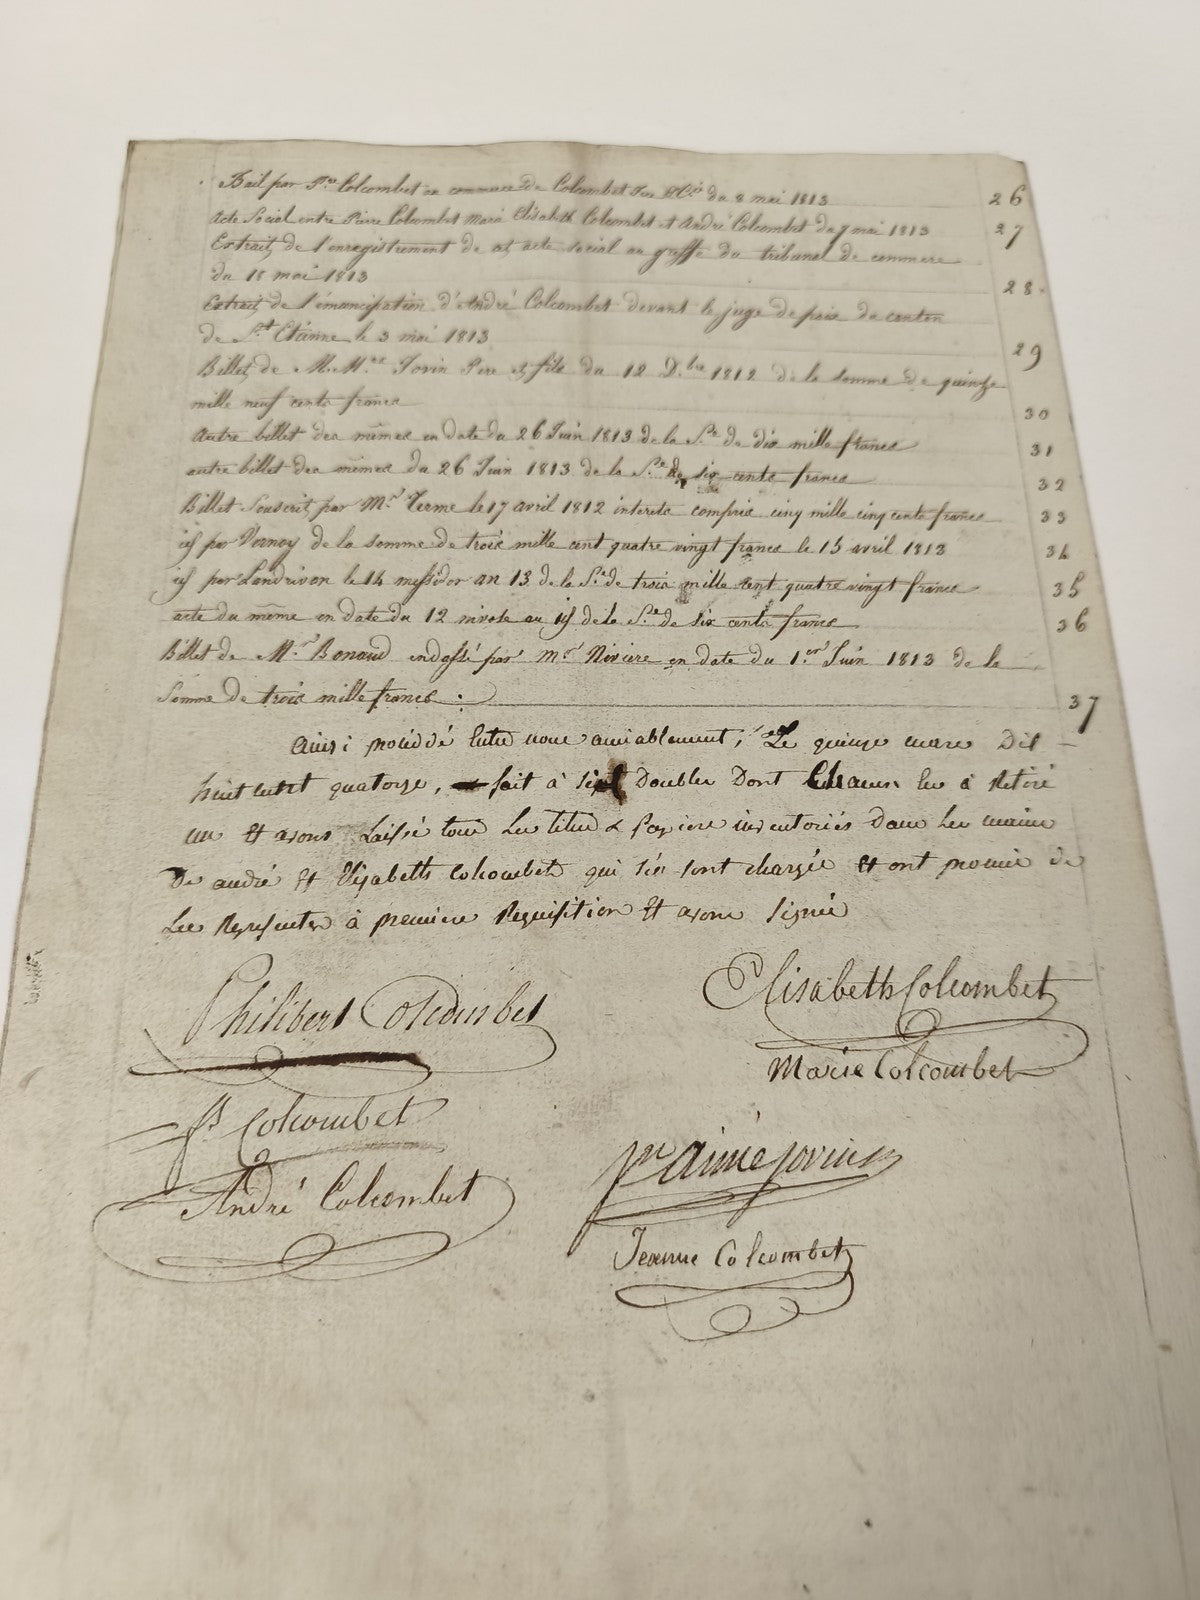 Bail par P.re Colcombet en commerce de Colcombet du 8 mai 1813 26
Acte Social entre Pierre Colcombet Marie Elisabeth Colcombet et André Colcombet du 7 mai 1813 27
Extrait de l'enregistrement de cet acte social au greffe du tribunal de commerce
du 18 mai 1813 28
Extrait de l'émancipation d'André Colcombet devant le juge de paix du canton
de S.t Etienne le 3 mai 1813 29
Billet de M.M.rs Jovin Pere et fils du 12 D.bre 1812 de la somme de quinze
mille neuf cents francs 30
autre billet des mêmes en date du 26 Juin 1813 de la S.e de dix mille francs 31
autre billet des mêmes du 26 Juin 1813 de la S.e de six cents francs 32
Billet Souscrit par M.r Terme le 17 avril 1812 interets compris cinq mille cinq cents francs 33
id par Vernay de la somme de trois mille cent quatre vingt francs le 15 avril 1813 34
id par Landrivon le 14 messidor an 13 de la S.e de trois mille cent quatre vingt francs 35
acte du même en date du 12 nivose an id de la S.e de six cents francs 36
Billet de M.r Bonand endossé par m.r Riviere en date du 1.er Juin 1813 de la
Somme de trois mille francs : 37
Ainsi procédé entre nous amiablement, Le quinze mars Dil
huit cent quatorze, fait à sept Doubles Dont Chacun en a Retiré
un Et avons Laissé tous Les titres & papiers inventoriés Dans Les mains
De andré Et Elisabeth Colcombet qui s'en sont chargés Et ont promis de
Les Représenter à premiere Requisition Et avons Signés
Philibert Colcombet
Elisabeth Colcombet
Marie Colcombet
Colcombet
André Colcombet
aimé Jovin
Jeanne Colcombet